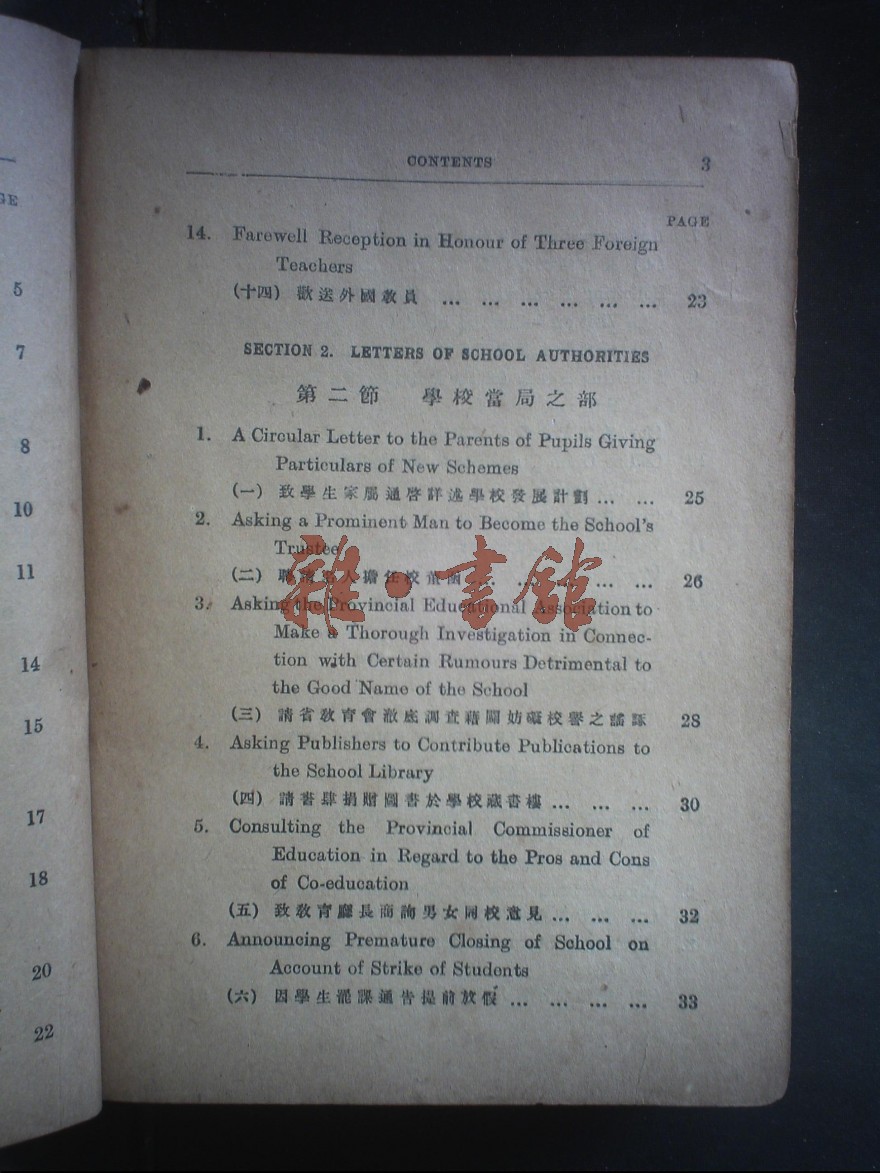 GE
5
7
8
10
11
14
15
17
18
20
22
CONTENTS 3
PAGE
14. Farewell Reception in Honour of Three Foreign
Teachers
(十四) 歡送外國教員 ... ... ... ... ... ... 23
SECTION 2. LETTERS OF SCHOOL AUTHORITIES
第二節 學校當局之部
1. A Circular Letter to the Parents of Pupils Giving
Particulars of New Schemes
(一) 致學生家屬通啓詳述學校發展計劃 ... ... 25
2. Asking a Prominent Man to Become the School's
Trustee
(二) 聘請名人擔任校董 ... ... ... ... ... 26
3. Asking the Provincial Educational Association to
Make a Thorough Investigation in Connec-
tion with Certain Rumours Detrimental to
the Good Name of the School
(三) 請省教育會澈底調查藉關妨礙校譽之謠諑 28
4. Asking Publishers to Contribute Publications to
the School Library
(四) 請書肆捐贈圖書於學校藏書樓 ... ... ... 30
5. Consulting the Provincial Commissioner of
Education in Regard to the Pros and Cons
of Co-education
(五) 致教育廳長商詢男女同校意見 ... ... ... 32
6. Announcing Premature Closing of School on
Account of Strike of Students
(六) 因學生罷課通告提前放假 ... ... ... ... 33
雜·書館